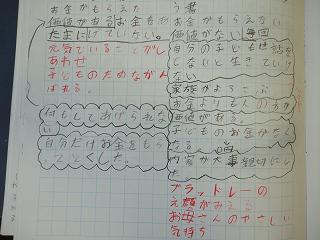 お金がもらえた
価値があるお金をあ
たまにげていない。
元気でいることがし
あわせ
子どものためながん
ばれる。
何もしてあげられな
い
自分だけお金をもら
ってとくした。
う書
お金がもらえない
価値がない毎回
自分の子どもは話を
しないと生きていけ
ない
家族がよろこぶ
お金よりも人の方が
価値がある。
子どものお金がなく
なる。
内容が大事親切にし
た
ブラッドレーの
えがおがみえる
お母さんのやさしい
気持ち